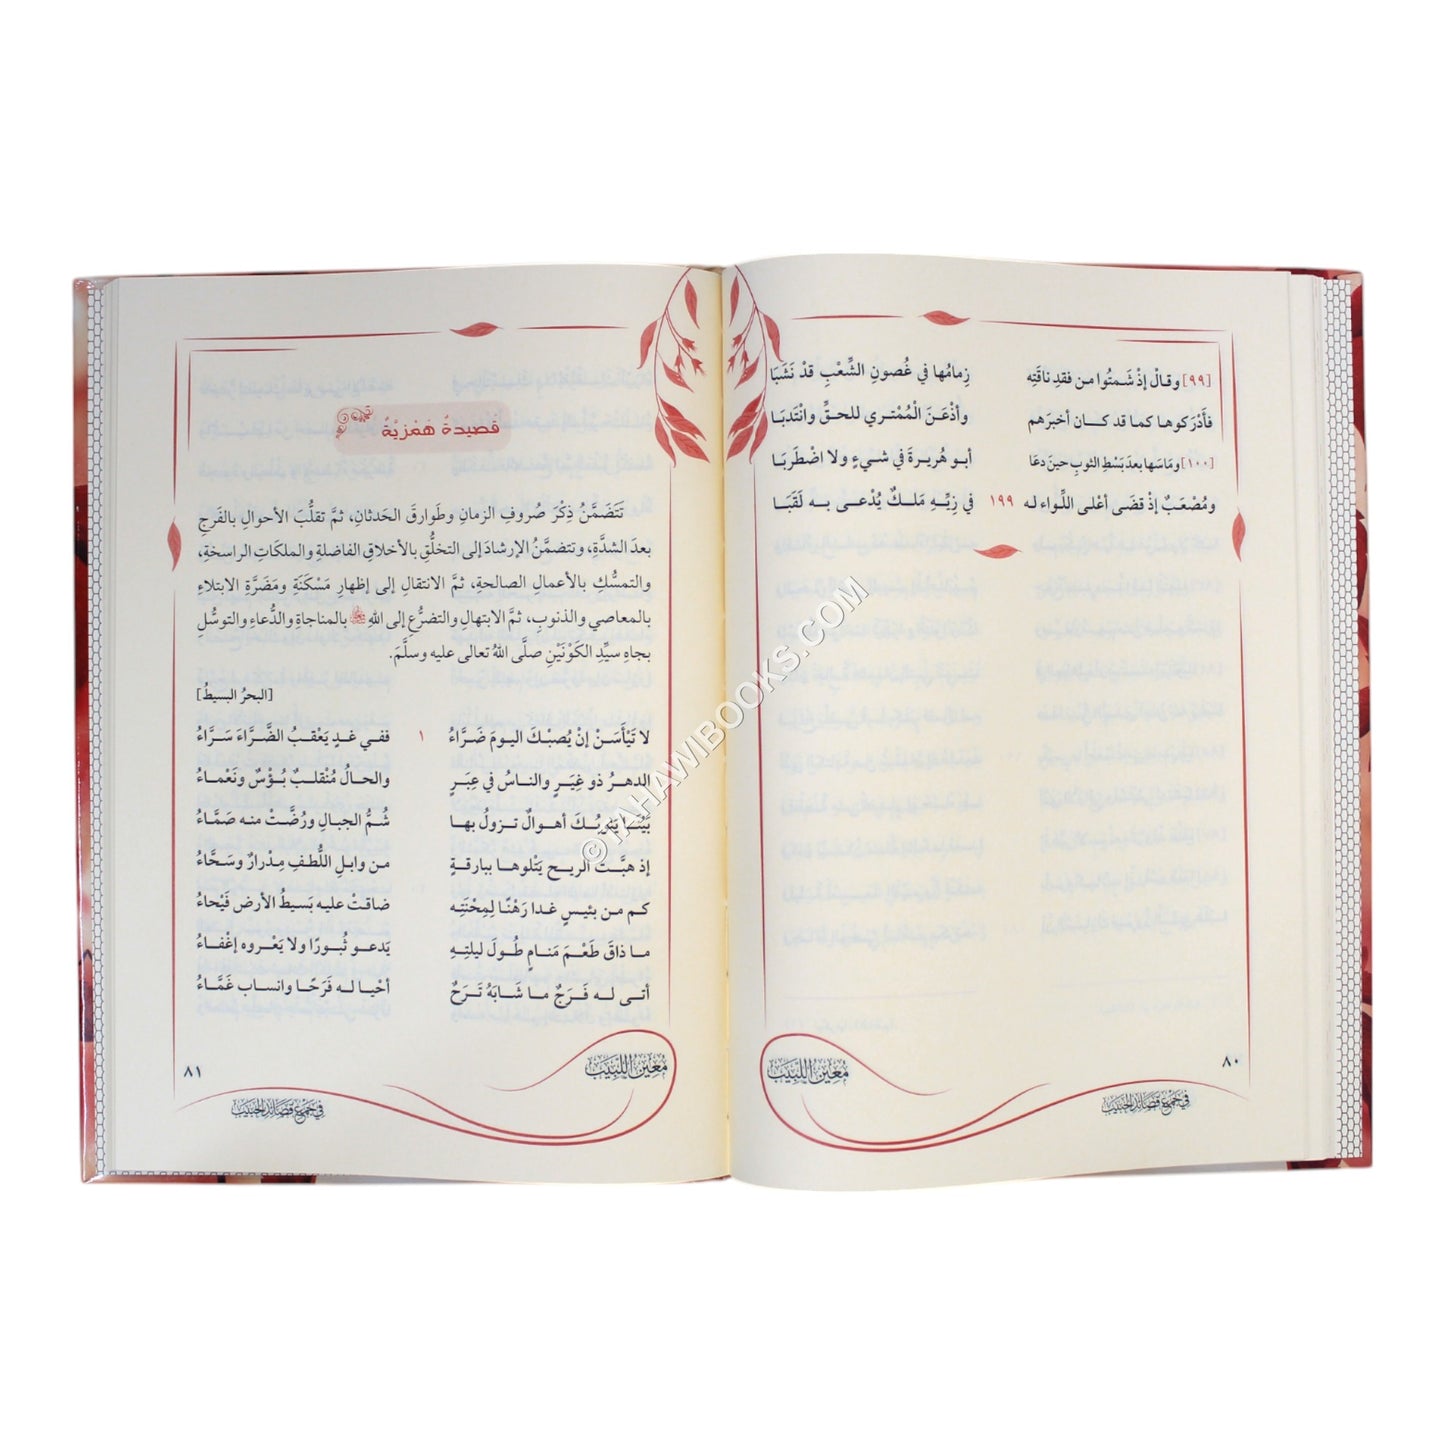 [٩٩] وقالْ إذْ شَمتُوا من فقدِ ناقَتِه زِمامُها في غُصونِ الشِّعْبِ قدْ نَشَبَا
فأَدْرَكوها كما قد كـان أخبرَهم وأذْعَنَ الْمُمْتري للحقِّ وانْتَدبَا
[١٠٠] ومَاسَها بعدَ بَسْطِ الثوبِ حينَ دعَا أبو هُريرةَ في شيءٍ ولا اضْطَربَا
ومُصْعَبٌ إذْ قضَى أعْلى اللِّواء له ١٩٩ في زِيِّهِ مَلـكٌ يُدْعـى بـه لَقَبَا
٨٠
مُعِينُ اللَّبِيبِ
في جَمْعِ قَصَائِدِ الحَبِيبِ
قصيدةٌ هَمْزيّةٌ
تَتَضَمَّنُ ذِكْرَ صُروفِ الزمانِ وطَوارقَ الحَدثانِ، ثمَّ تقلُّبَ الأحوالِ بالفَرجِ
بعدَ الشدَّةِ، وتتضمَّنُ الإرشادَ إلى التخلُّقِ بالأخلاقِ الفاضلةِ والملَكاتِ الراسخةِ،
والتمسُّكِ بالأعمالِ الصالحةِ، ثمَّ الانتقال إلى إظهارِ مَسْكَنَةِ ومَضَرَّةِ الابتلاءِ
بالمعاصي والذنوبِ، ثمَّ الابتهالِ والتضرُّعِ إلى اللهِ ﷻ بالمناجاةِ والدُّعاءِ والتوسُّلِ
بجاهِ سيِّدِ الكَوْنَيْنِ صلَّى اللهُ تعالى عليه وسلَّمَ.
[البحرُ البسيطُ]
لا تَيْأَسَنْ إنْ يُصبْكَ اليومَ ضَرَّاءُ ١ ففي غَدٍ يَعْقبُ الضَّرَّاءَ سَرَّاءُ
الدهرُ ذو غِيَرٍ والناسُ في عِبَرٍ والحالُ مُنْقلبٌ بُؤْسٌ ونَعْماءُ
بَيْنَا يَنُوبُكَ أهوالٌ تزولُ بها شُمُّ الجبالِ ورُضَّتْ منه صَمَّاءُ
إذ هبَّت الريح يَتْلوها ببارقةٍ من وابلِ اللُّطفِ مِدْرارٌ وسَحَّاءُ
كم من بئيسٍ غدا رَهْنًا لِمِحْنَتِه ضاقتْ عليه بَسيطُ الأرض فَيْحاءُ
ما ذاقَ طَعْمَ مَنامٍ طُولَ ليلتِهِ يَدعو ثُبورًا ولا يَعْروه إغْفاءُ
أتى له فَرَجٌ ما شَابَهُ تَرَحٌ أحْيا له فَرَحًا وانساب غَمَّاءُ
٨١
مُعِينُ اللَّبِيبِ
في جَمْعِ قَصَائِدِ الحَبِيبِ
©TAHAWIBOOKS.COM